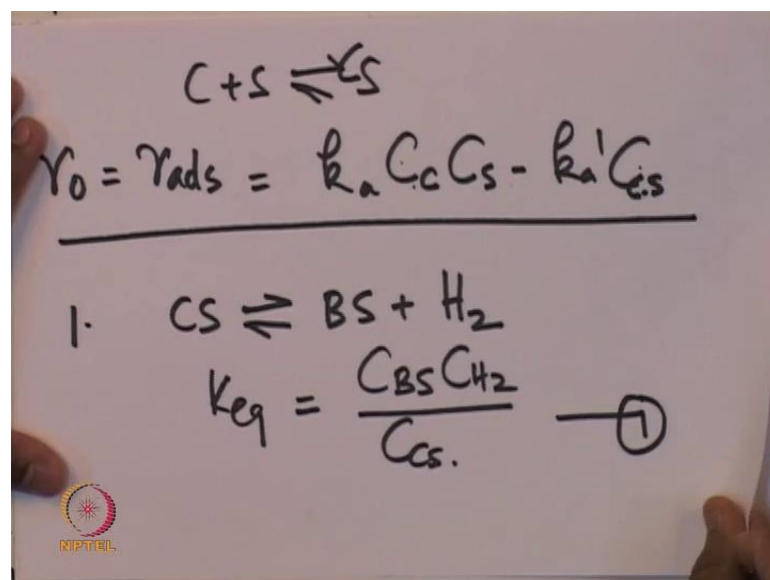 C + S ⇌ CS
r₀ = r_ads = k_a C_C C_S - k_a' C_CS
1. CS ⇌ BS + H₂
K_eq = C_BS C_H₂ / C_CS. — ①
NPTEL